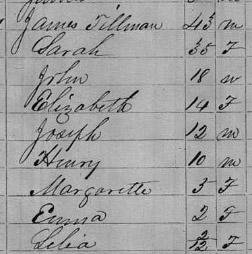 James Tillman 43 m
Sarah 35 F
John 18 m
Elizabeth 14 F
Joseph 12 m
Henry 10 m
Margarette 5 F
Emma 2 F
Lelia 2/12 F